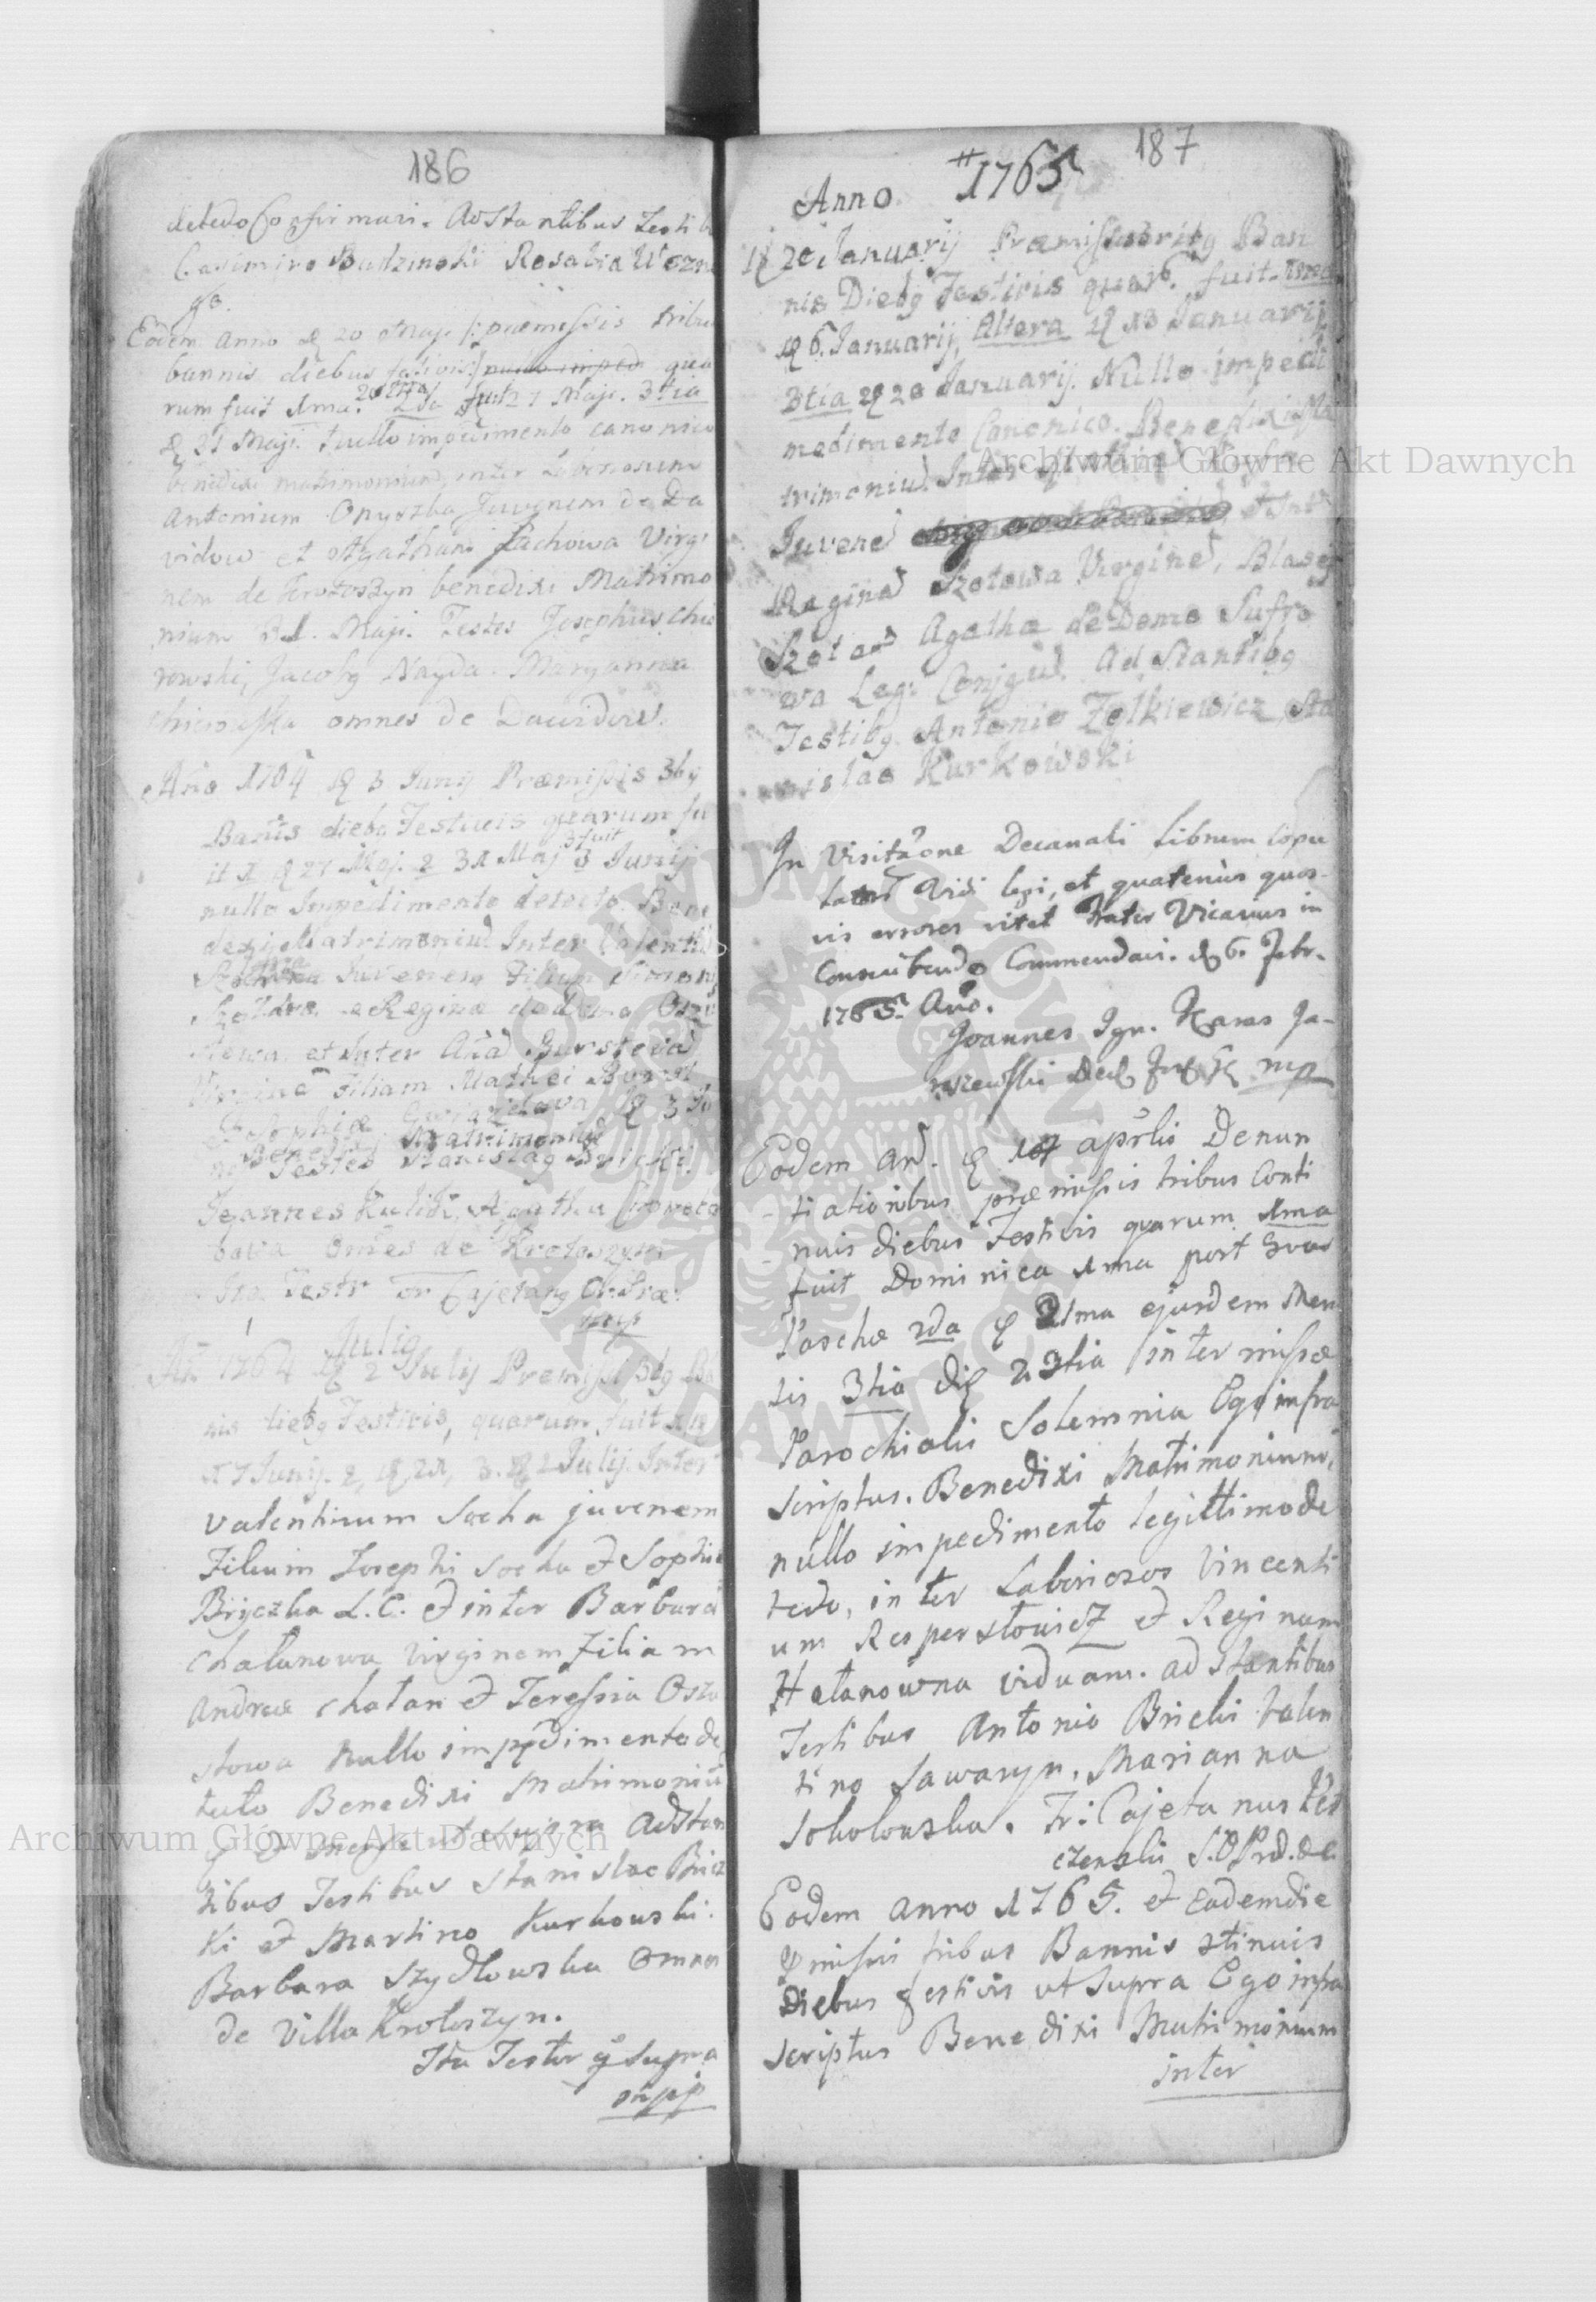 186
detecto Confirmari. Adstantibus Testib
Casimiro Budzinski Rosalia Wozni
ga.
Eodem Anno d 20 Maji /: praemissis tribu
bannis diebus festivis :/ nullo imped qua
rum fuit 1ma. 20 Maji 2da fuit 27 Maji. 3tia
d 31 Maji. Nullo impedimento canonico
benedixi matrimonium inter Laboriosum
Antonium Onyszka Juvenem de Da
vidow et Agatham Lachowa Virgi
nem de Krotoszyn benedixi Matrimo
nium Maji. Testes Josephus Chi
rowski, Jacobg Nayda. Maryanna
omnes de Dawidow.
Ano 1764 d 3 Junij Praemissis 3bg
Banis diebg Festivis quarum fu
it 1 d 27 Maj. 2 31 Maj 3 fuit 3 Junij
nullo Impedimento detecto. Bene
dixi Matrimoniu Inter Valentin
Juvenem Filium Simonis
e Reginae de domo
et Inter Bursteva
Virgine Filiam Mathei Burst
et Sophiae d 3 Ju
ni Benedixi Matrimoniu
Testes Stanislag Bricki
Joannes Kulik, Agatha
bowa omes de Krotoszyn
Ita Testr Fr Cajetang Or. Prae.
mpp
Julig
An 1764 d 2 Julij Premissi 3bg Ba
nis diebg Festivis, quarum fuit 1 d
17 Junij. 2, d 21, 3. d 2 Julij. Inter
Valentinum Socha juvenem
Filium Josephi Socha et Sophia
Bryczka L. C. et inter Barbara
Chatanowa Virginem Filiam
Andreae Chatan et Teressia Osza
stowa Nullo impedimento de
tecto Benedixi Matrimoniu
et mense ut supra Adstan
tibus Testibus Stanislao Bric
ki et Martino Kurkowski.
Barbara Szydlowska Omnes
de Villa Krotoszyn.
Ita Testor q Supra
mpp
187
Anno 1765
d 20 Januarij Praemissis tribg Ban
nis Diebg Festivis quar. fuit 1ma
d 6. Januarij, Altera d 13 Januarij
3tia d 20 Januarij. Nullo impedi
medimento Canonico. Benedixi Ma
trimoniu Inter
Juvene et Int
Regina Szotowa Virgine, Blasej
Szot ac Agatha de Domo Sufro
wa Leg: Conjgu. Ad Stantibg
Testibg Antonio Zolkiewicz, Sta
nislao Kurkowski
In Visitaone Decanali Librum Copu
lator Vidi legi, et quatenus quos
vis errores vitet Frater Vicarius in
Conscribendo Commendavi. d 6. Febr.
1765. Ano.
Joannes Ign. Karas Ja-
niszewski Dec mp
Eodem an. d 107 aprilis Denun
tiationibus praemissis tribus Conti
nuis diebus Festivis quarum 1ma
fuit Dominica 1ma post
Paschae 2da d 21ma ejusdem Men
sis 3tia die 23tia inter missae
Parochialis Solemnia Ego infra
scriptus. Benedixi Matrimonium,
nullo impedimento legittimo de
tecto, inter Laboriosos Vincenti
um Resperstowicz et Reginam
Hatanowna viduam. ad Stantibus
Testibus Antonio Bricki Valen
tino Sawaryn, Marianna
Sokolowska. Fr: Cajetanus
S. O Prd.
Eodem anno 1765. et Eademdie
pmissis tribus Bannis 9tinuis
Diebus festivis ut Supra Ego infra
scriptus Benedixi Matrimonium
inter
Archiwum Główne Akt Dawnych
Archiwum Główne Akt Dawnych
ARCHIWUM GŁÓWNE AKT DAWNYCH